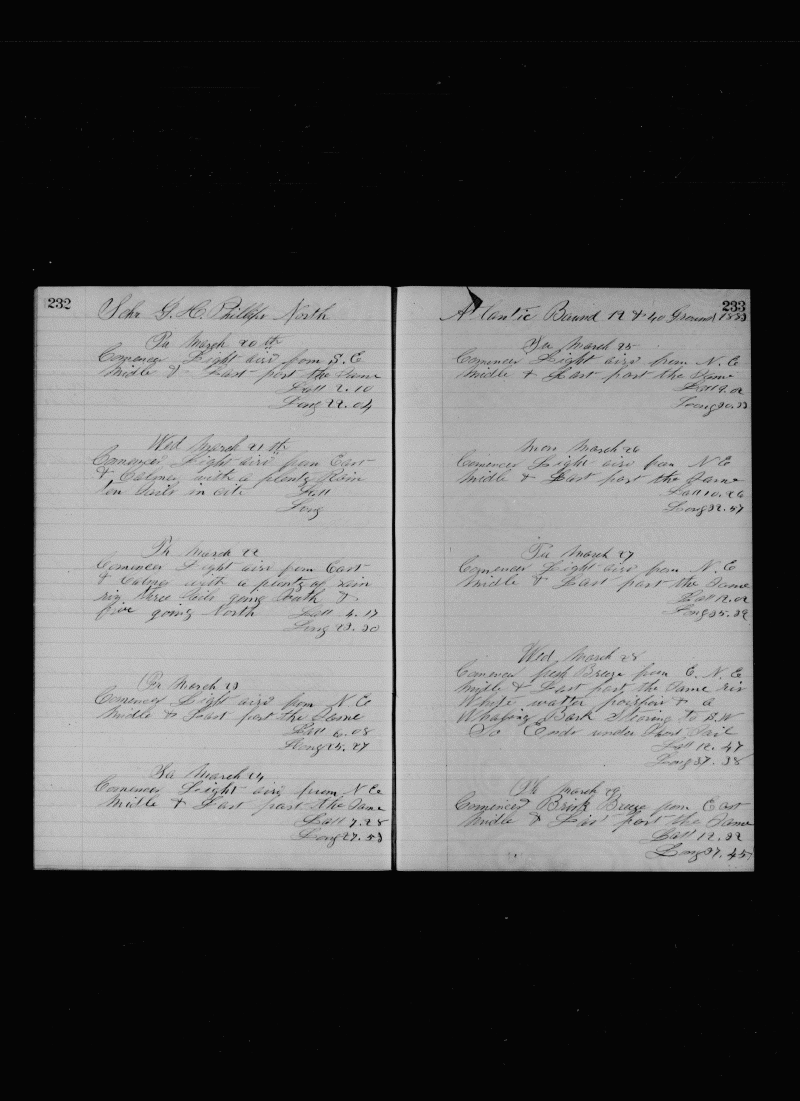 232
Schr G. H. Phillips North
Tu March 20th
Comences Light airs from S. E
Midle & Last part the Same
Latt 2.10
Long 22.04
Wed March 21th
Comences Light airs from East
& Calmes with a plenty Rain
ten Sails in cite Latt
Long
Th March 22
Comences Light airs from East
& Calmes with a plenty of rain
three Sails going South &
five going North Latt 4.17
Long 23.20
Fr March 23
Comences Light airs from N. E
Midle & Last part the Same
Latt 6.08
Long 25.27
Sa March 24
Comences Light airs from N. E
Midle & Last part the Same
Latt 7.28
Long 27.53
233
Atlantic Bound 12 & 40 Ground 1883
Su March 25
Comences Light airs from N. E
Midle & Last part the Same
Latt 9.02
Long 30.33
Mon March 26
Comences Light airs from N E
Midle & Last part the Same
Latt 10.26
Long 32.57
Tu March 27
Comences Light airs from N. E
Midle & Last part the Same
Latt 12.02
Long 35.32
Wed March 28
Comences fresh Breeze from E. N. E
Midle & Last part the Same
White watter & a
Whaling Bark Stearing to S. W
So Ends under Short Sail
Latt 12.47
Long 37.38
Th March 29
Comences Brisk Breeze from East
Midle & Las part the Same
Latt 12.32
Long 37.45